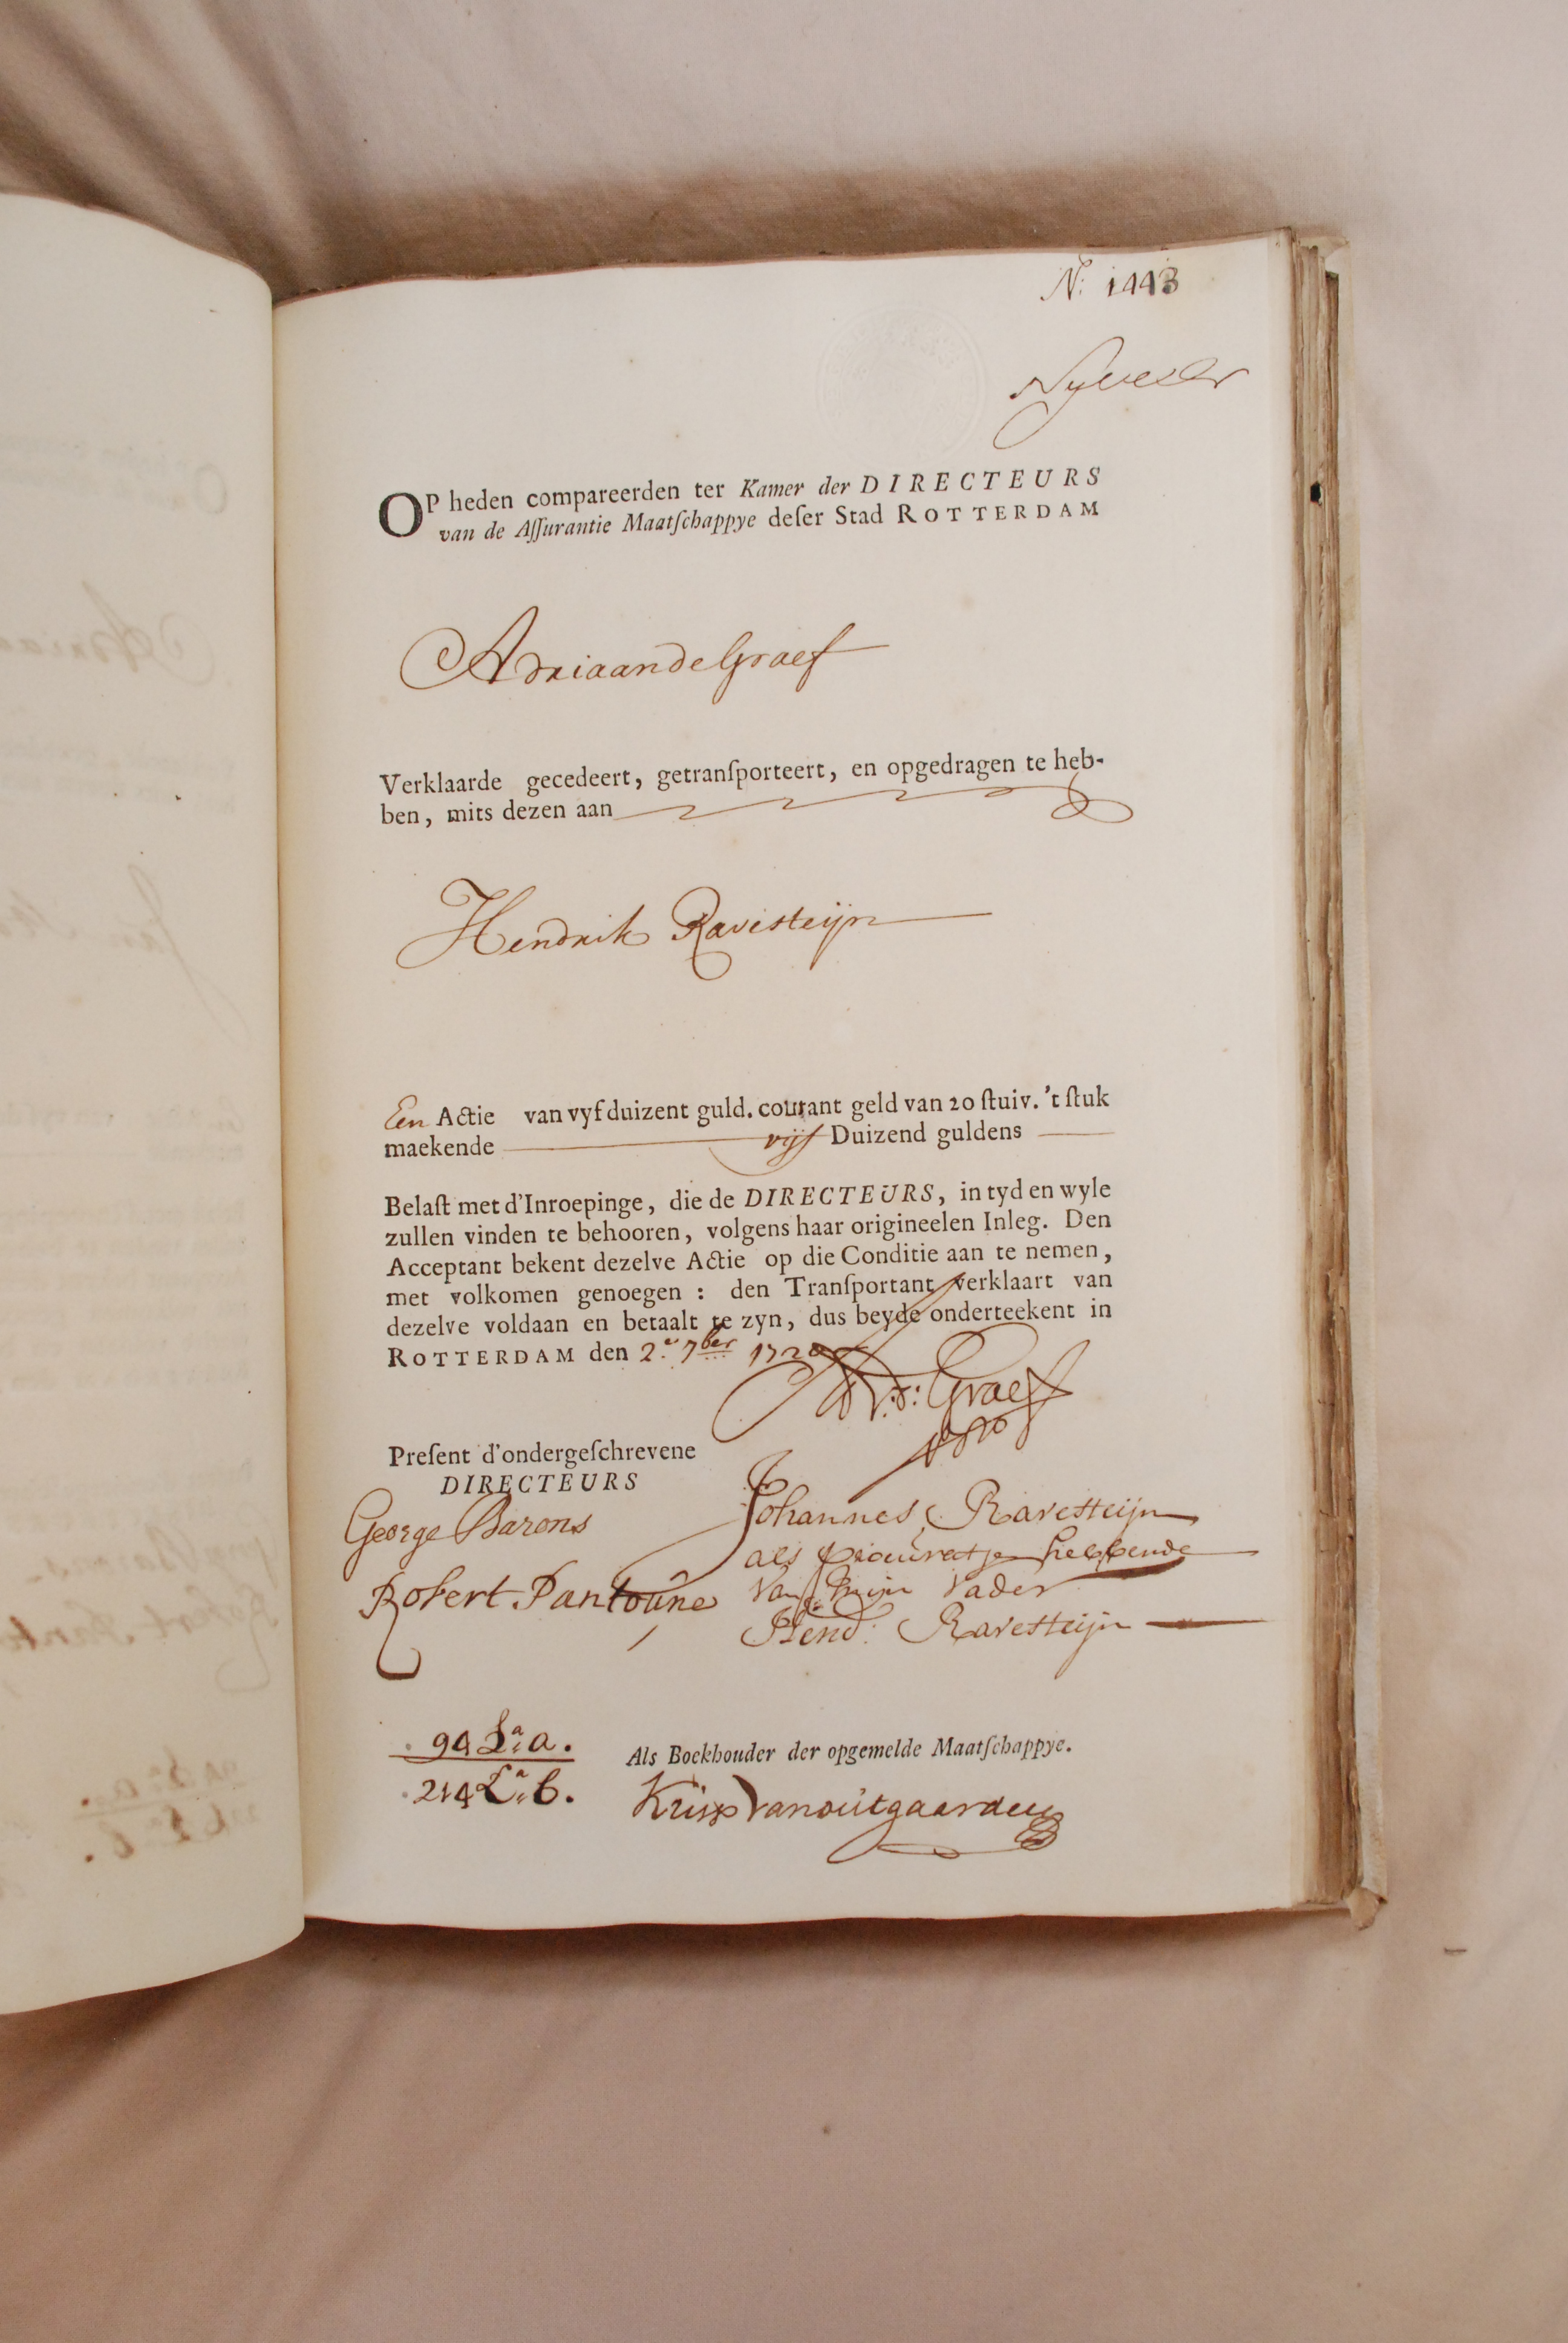 N: 1443
OP heden compareerden ter Kamer der DIRECTEURS
van de Aſſurantie Maatſchappye deſer Stad ROTTERDAM
Adriaan de Graef
Verklaarde gecedeert, getranſporteert, en opgedragen te heb-
ben, mits dezen aan
Hendrik Ravesteijn
Een Actie van vyf duizent guld. courant geld van 20 ſtuiv. 't ſtuk
maekende vijf Duizend guldens
Belaſt met d'Inroepinge, die de DIRECTEURS, in tyd en wyle
zullen vinden te behooren, volgens haar origineelen Inleg. Den
Acceptant bekent dezelve Actie op die Conditie aan te nemen,
met volkomen genoegen : den Tranſportant verklaart van
dezelve voldaan en betaalt te zyn, dus beyde onderteekent in
ROTTERDAM den 2e 7ber 1720
Ad: d: Graef
Preſent d'ondergeſchrevene
DIRECTEURS
George Barons
Johannes Ravesteijn
als procuratje hebbende
Robert Pantoune
van mijn vader
Hend: Ravesteijn
94 La a.
214 La b.
Als Boekhouder der opgemelde Maatſchappye.
Kriex van outgaarden